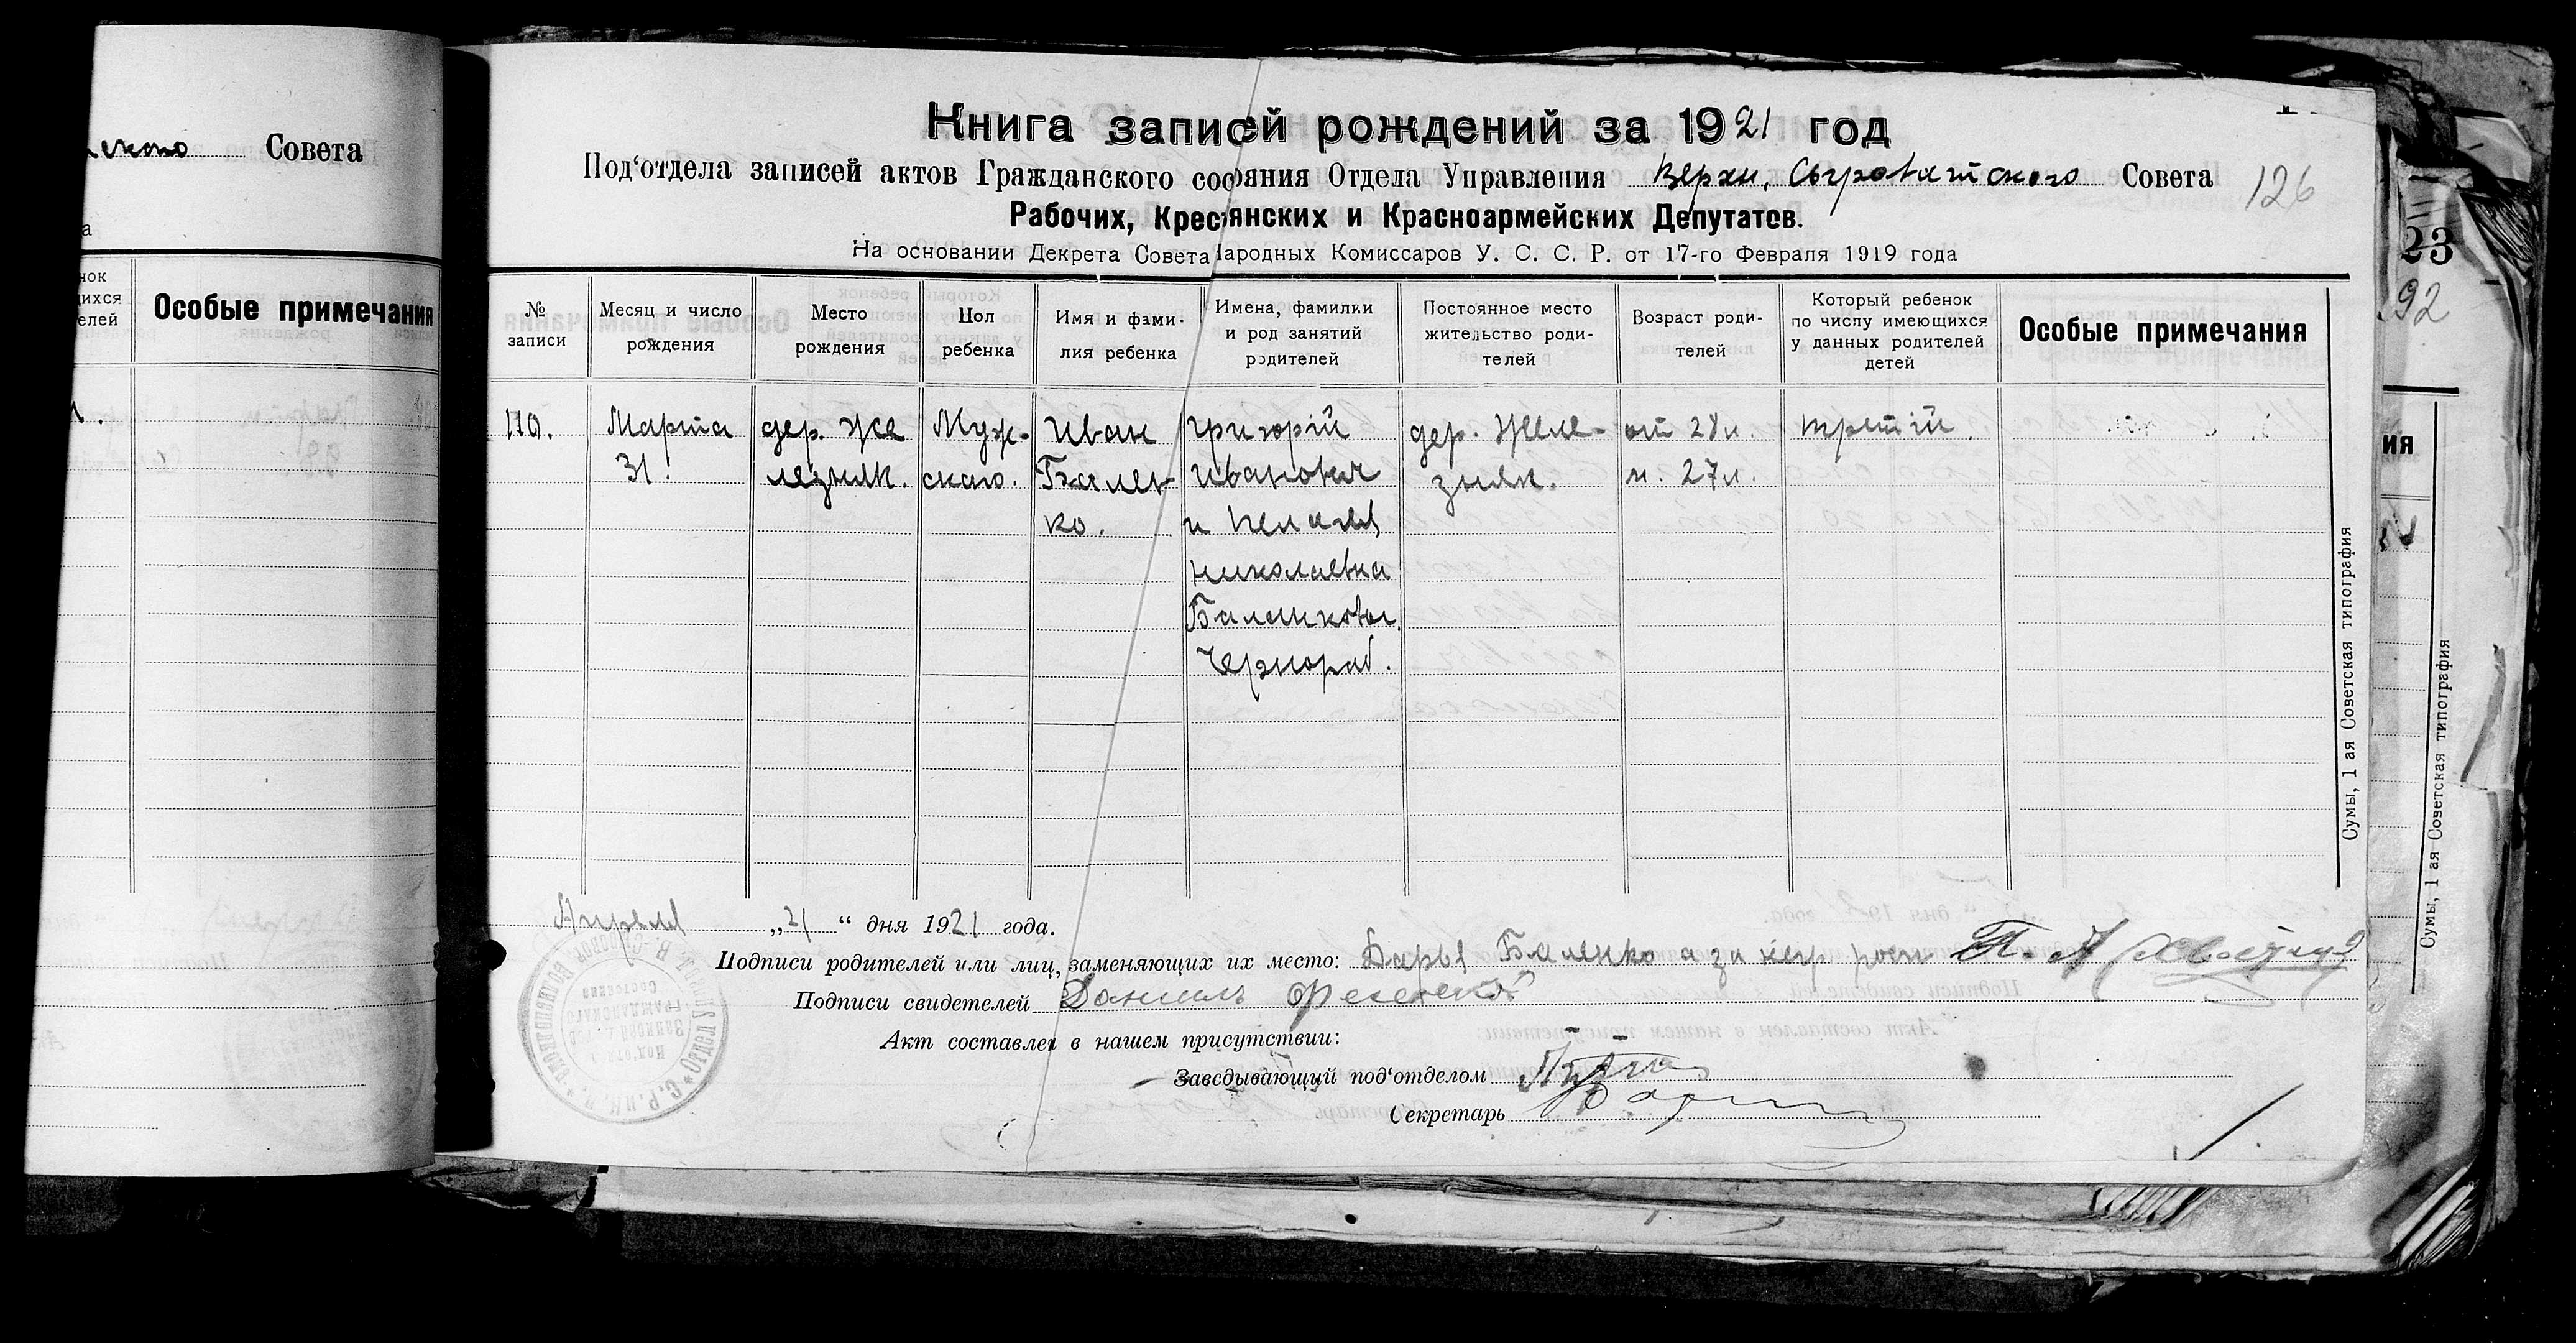 Совета
Особые примечания
Книга записей рождений за 1921 год
Под‘отдела записей актов Гражданского состояния Отдела Управления Верхн. Сыроватского Совета
126
Рабочих, Крестянских и Красноармейских Депутатов.
На основании Декрета Совета Народных Комиссаров У. С. С. Р. от 17-го Февраля 1919 года
23
92
№ записи
Месяц и число рождения
Место рождения
Пол ребенка
Имя и фами-
лия ребенка
Имена, фамилки
и род занятий
родителей
Постоянное место
жительство роди-
телей
Возраст роди-
телей
Который ребенок
по числу имеющихся
у данных родителей
детей
Особые примечания
110.
Марта
31.
дер. Же
лезняк.
Муж-
скаго.
Иван
Бален-
ко.
Григорій
Иванович
и Пелагея
Николаевна
Баленковы.
Чернораб.
дер. Желе-
зняк.
от 28 л.
м. 27 л.
третій.
Апреля „21“ дня 1921 года.
Подписи родителей или лиц, заменяющих их место: Дарья Баленко а за негр рос
Подписи свидетелей Даниил
Акт составлен в нашем присутствии:
Заведывающий под‘отделом
Секретарь
Сумы, 1 ая Советская типография
Сумы, 1 ая Советская типография